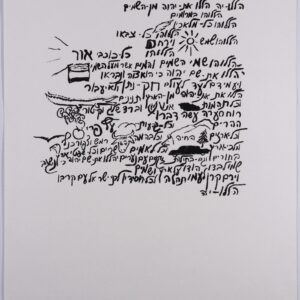 הללו-יה הללו את יהוה מן-השמים
הללוהו במרומים
הללוהו כל-מלאכיו הללוהו כל-צבאו
הללוהו שמש וירח
הללוהו כל כוכבי אור
הללוהו שמי השמים והמים אשר מעל השמים
יהללו את-שם יהוה כי הוא צוה ונבראו
ויעמידם לעד לעולם חק-נתן ולא יעבור
הללו את-יהוה מן-הארץ תנינים
וכל תהמות אש וברד שלג וקיטור
רוח סערה עשה דברו
ההרים וכל גבעות עץ פרי
וכל ארזים החיה וכל בהמה רמש וצפור כנף
מלכי ארץ וכל לאמים שרים וכל שפטי ארץ
בחורים וגם בתולות זקנים עם נערים יהללו את שם יהוה כי נשגב
שמו לבדו הודו על ארץ ושמים
וירם קרן לעמו תהלה לכל חסידיו לבני ישראל עם קרבו
הללו-יה